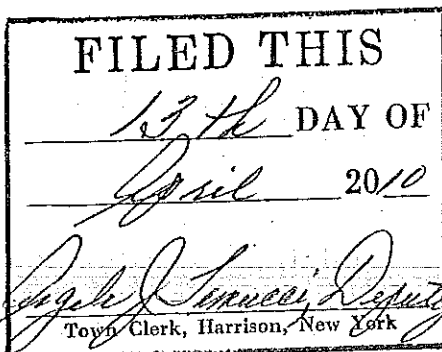 FILED THIS
13th DAY OF
April 2010
Deputy
Town Clerk, Harrison, New York